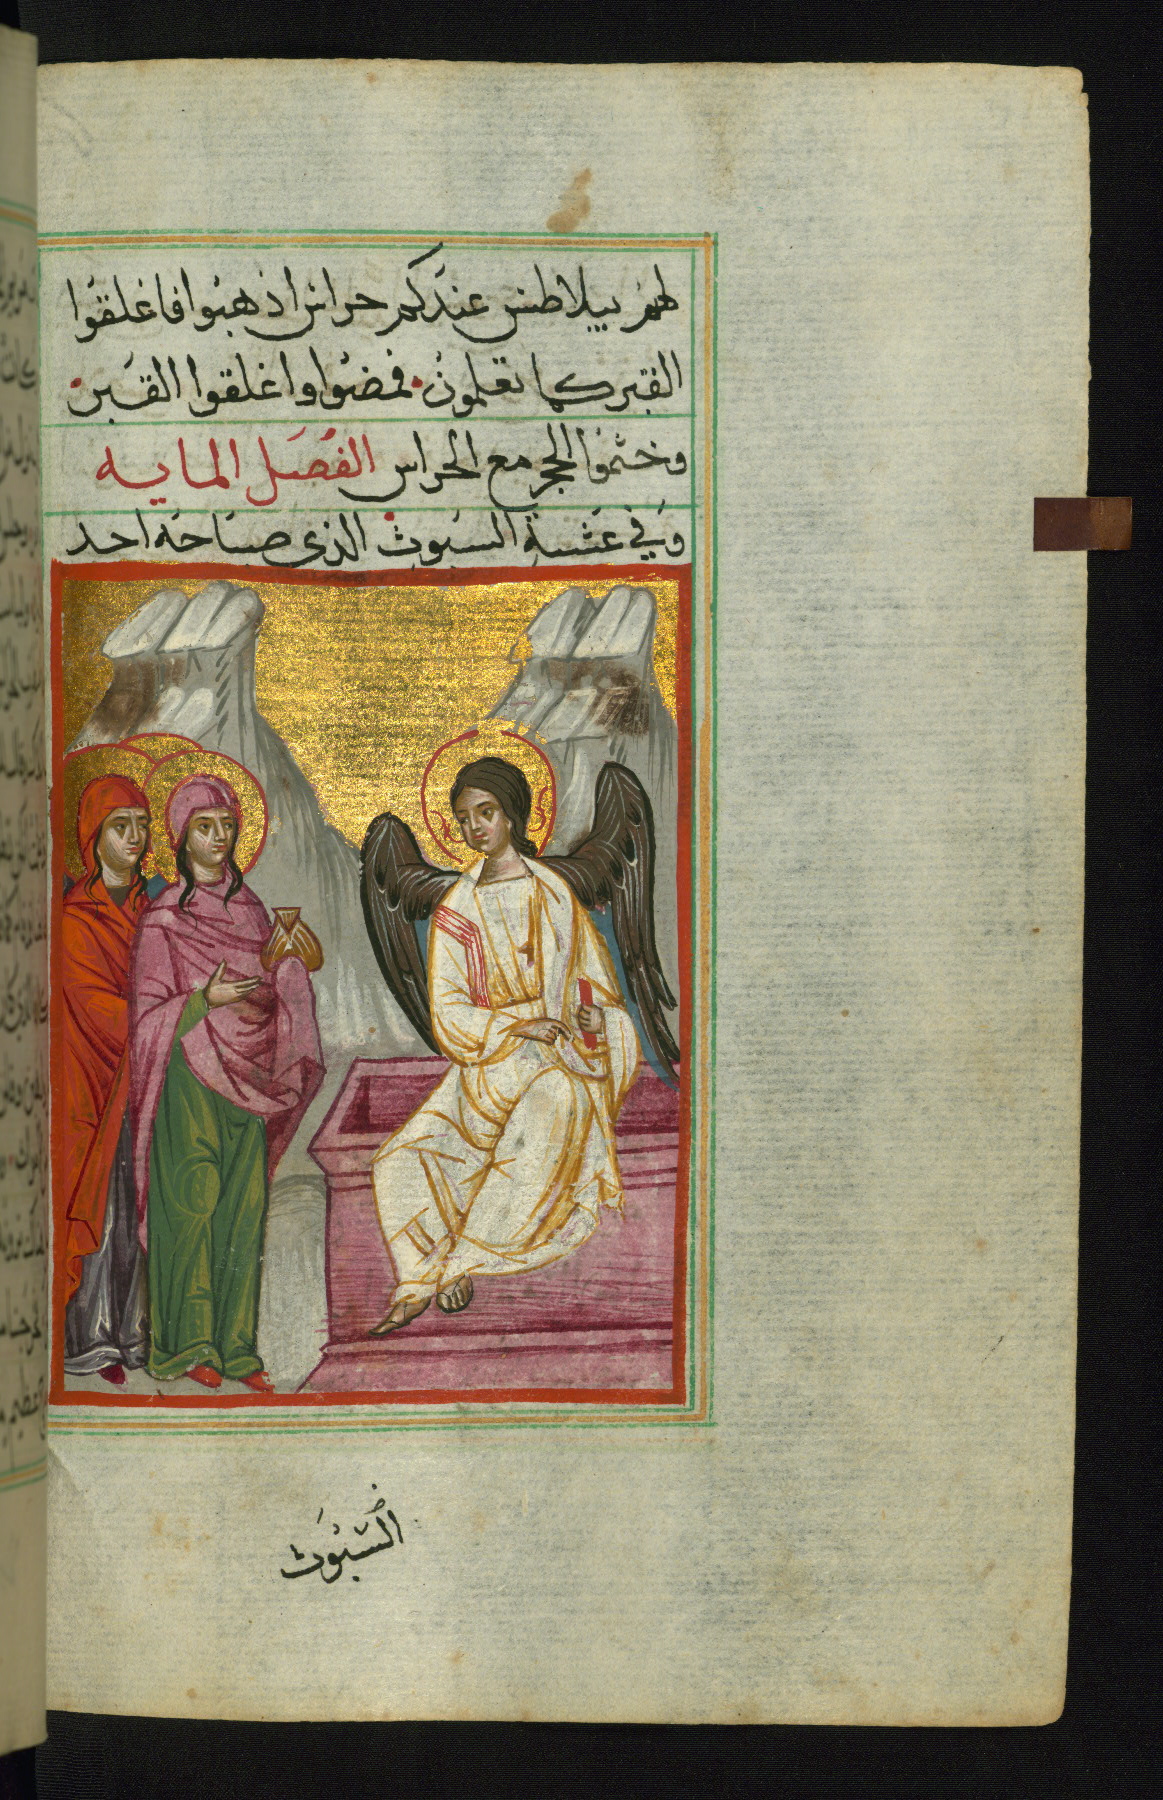 لهم بيلاطس عندكم حراس اذهبوا فاغلقوا
القبر كما تعلمون. فمضوا واغلقوا القبر.
وختموا الحجر مع الحراس الفصل المايه
وفي عشية السبوت الذي صباحه احد
السبوت